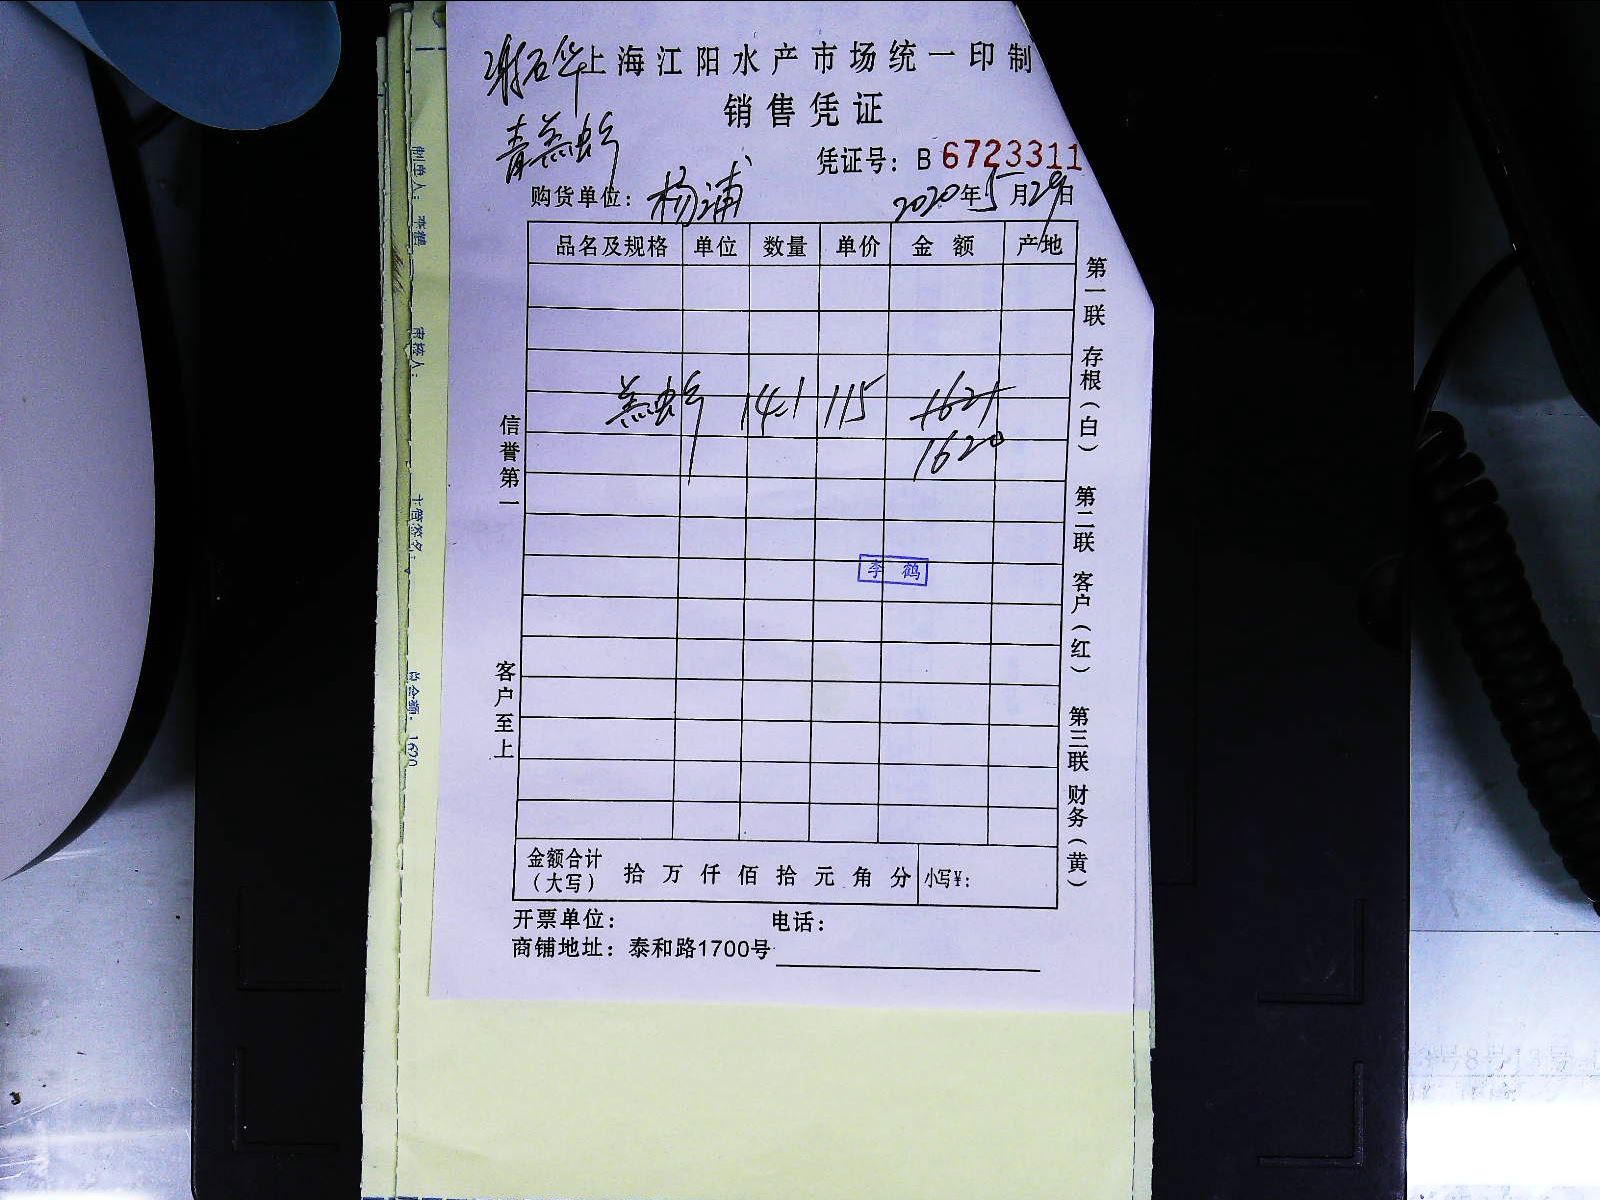 谢石华
上海江阳水产市场统一印制
销售凭证
青羔虾
凭证号：B 6723311
购货单位：杨浦 2020年5月29日
品名及规格 单位 数量 单价 金额 产地
羔虾 14.1 115 1621
1620
李鹤
信誉第一
客户至上
第一联 存根（白） 第二联 客户（红） 第三联 财务（黄）
金额合计（大写） 拾 万 仟 佰 拾 元 角 分 小写¥：
开票单位： 电话：
商铺地址：泰和路1700号
制单人：李
审核人：
主管签名：
总金额：1620